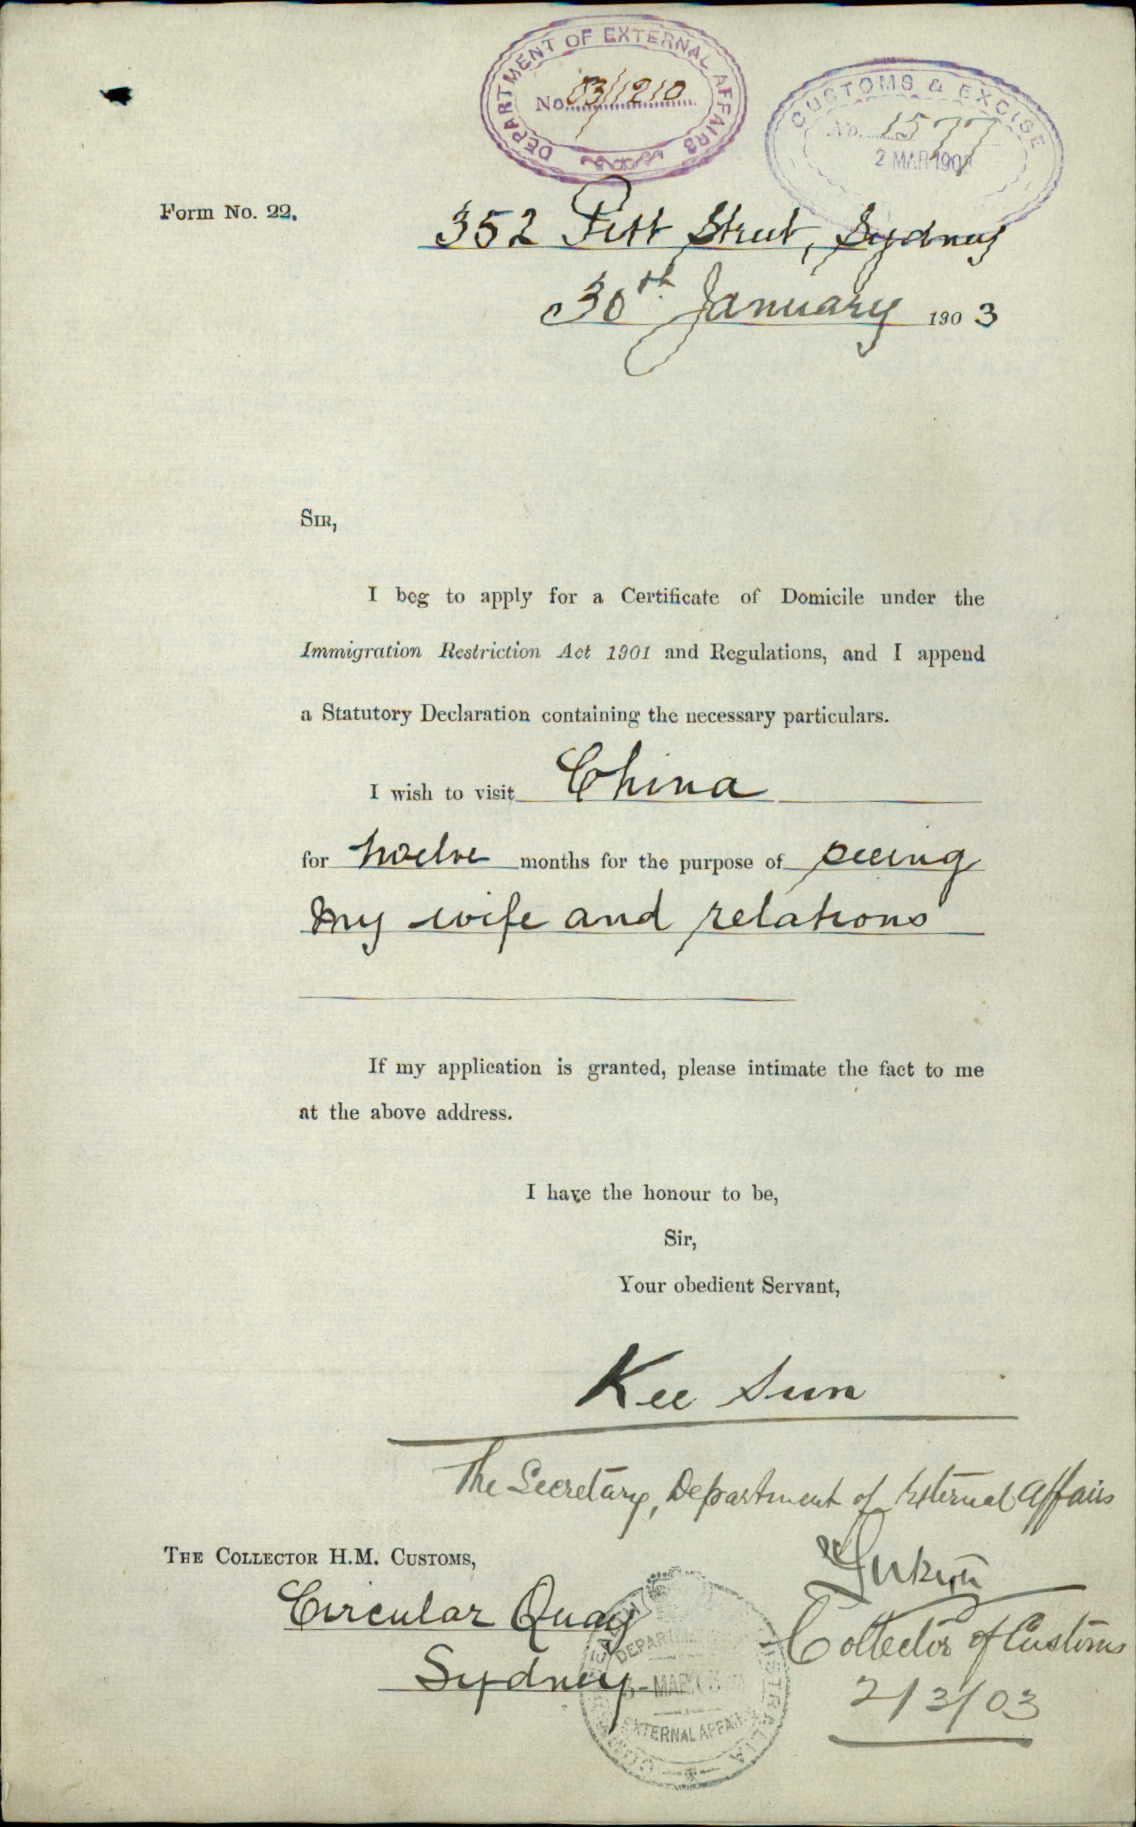 DEPARTMENT OF EXTERNAL AFFAIRS
No. 03/1210
CUSTOMS & EXCISE
No. 1577
2 MAR 190
Form No. 22.
352 Pitt Street, Sydney
30th January 1903
SIR,
I beg to apply for a Certificate of Domicile under the
Immigration Restriction Act 1901 and Regulations, and I append
a Statutory Declaration containing the necessary particulars.
I wish to visit China
for twelve months for the purpose of seeing
my wife and relations
If my application is granted, please intimate the fact to me
at the above address.
I have the honour to be,
Sir,
Your obedient Servant,
Kee Sun
The Secretary, Department of External Affairs
THE COLLECTOR H.M. CUSTOMS,
Circular Quay
Collector of Customs
Sydney
2/3/03
MAR
EXTERNAL AFFAIRS